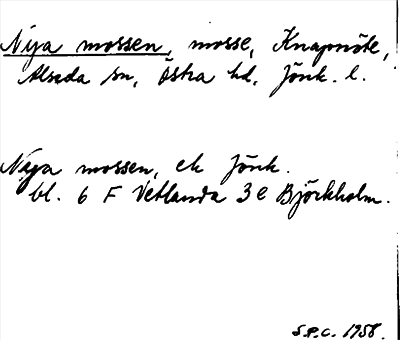 Nya mossen, mosse, Knapanöte,
Alseda sn, Östra hd, Jönk. l.
Nya mossen, ek Jönk.
bl. 6 F Vetlanda 3 e Björkholm.
S.P.C. 1958.